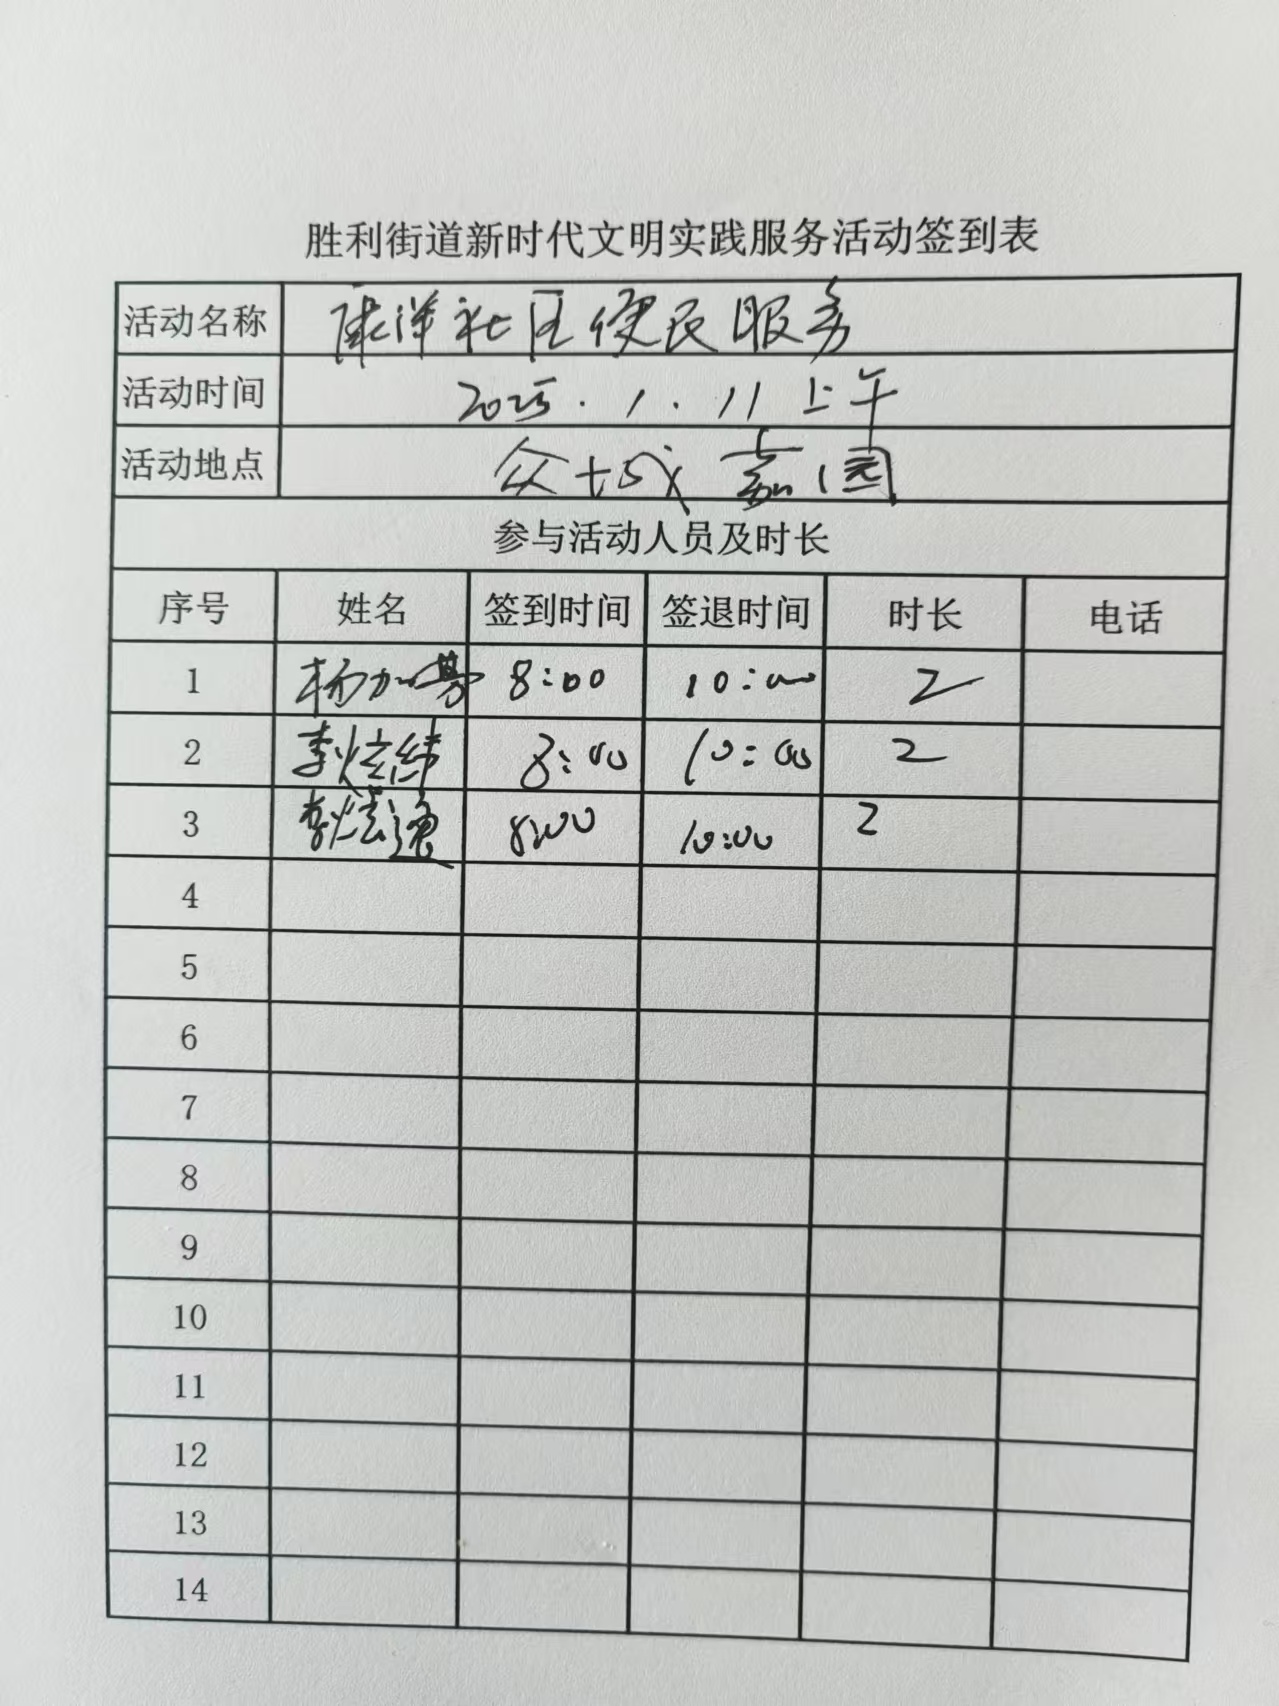 胜利街道新时代文明实践服务活动签到表
活动名称 康洋社区便民服务
活动时间 2025.1.11上午
活动地点 众城嘉园
参与活动人员及时长
序号 姓名 签到时间 签退时间 时长 电话
1 杨加 8:00 10:00 2
2 李炫纬 8:00 10:00 2
3 李炫通 8:00 10:00 2
4
5
6
7
8
9
10
11
12
13
14